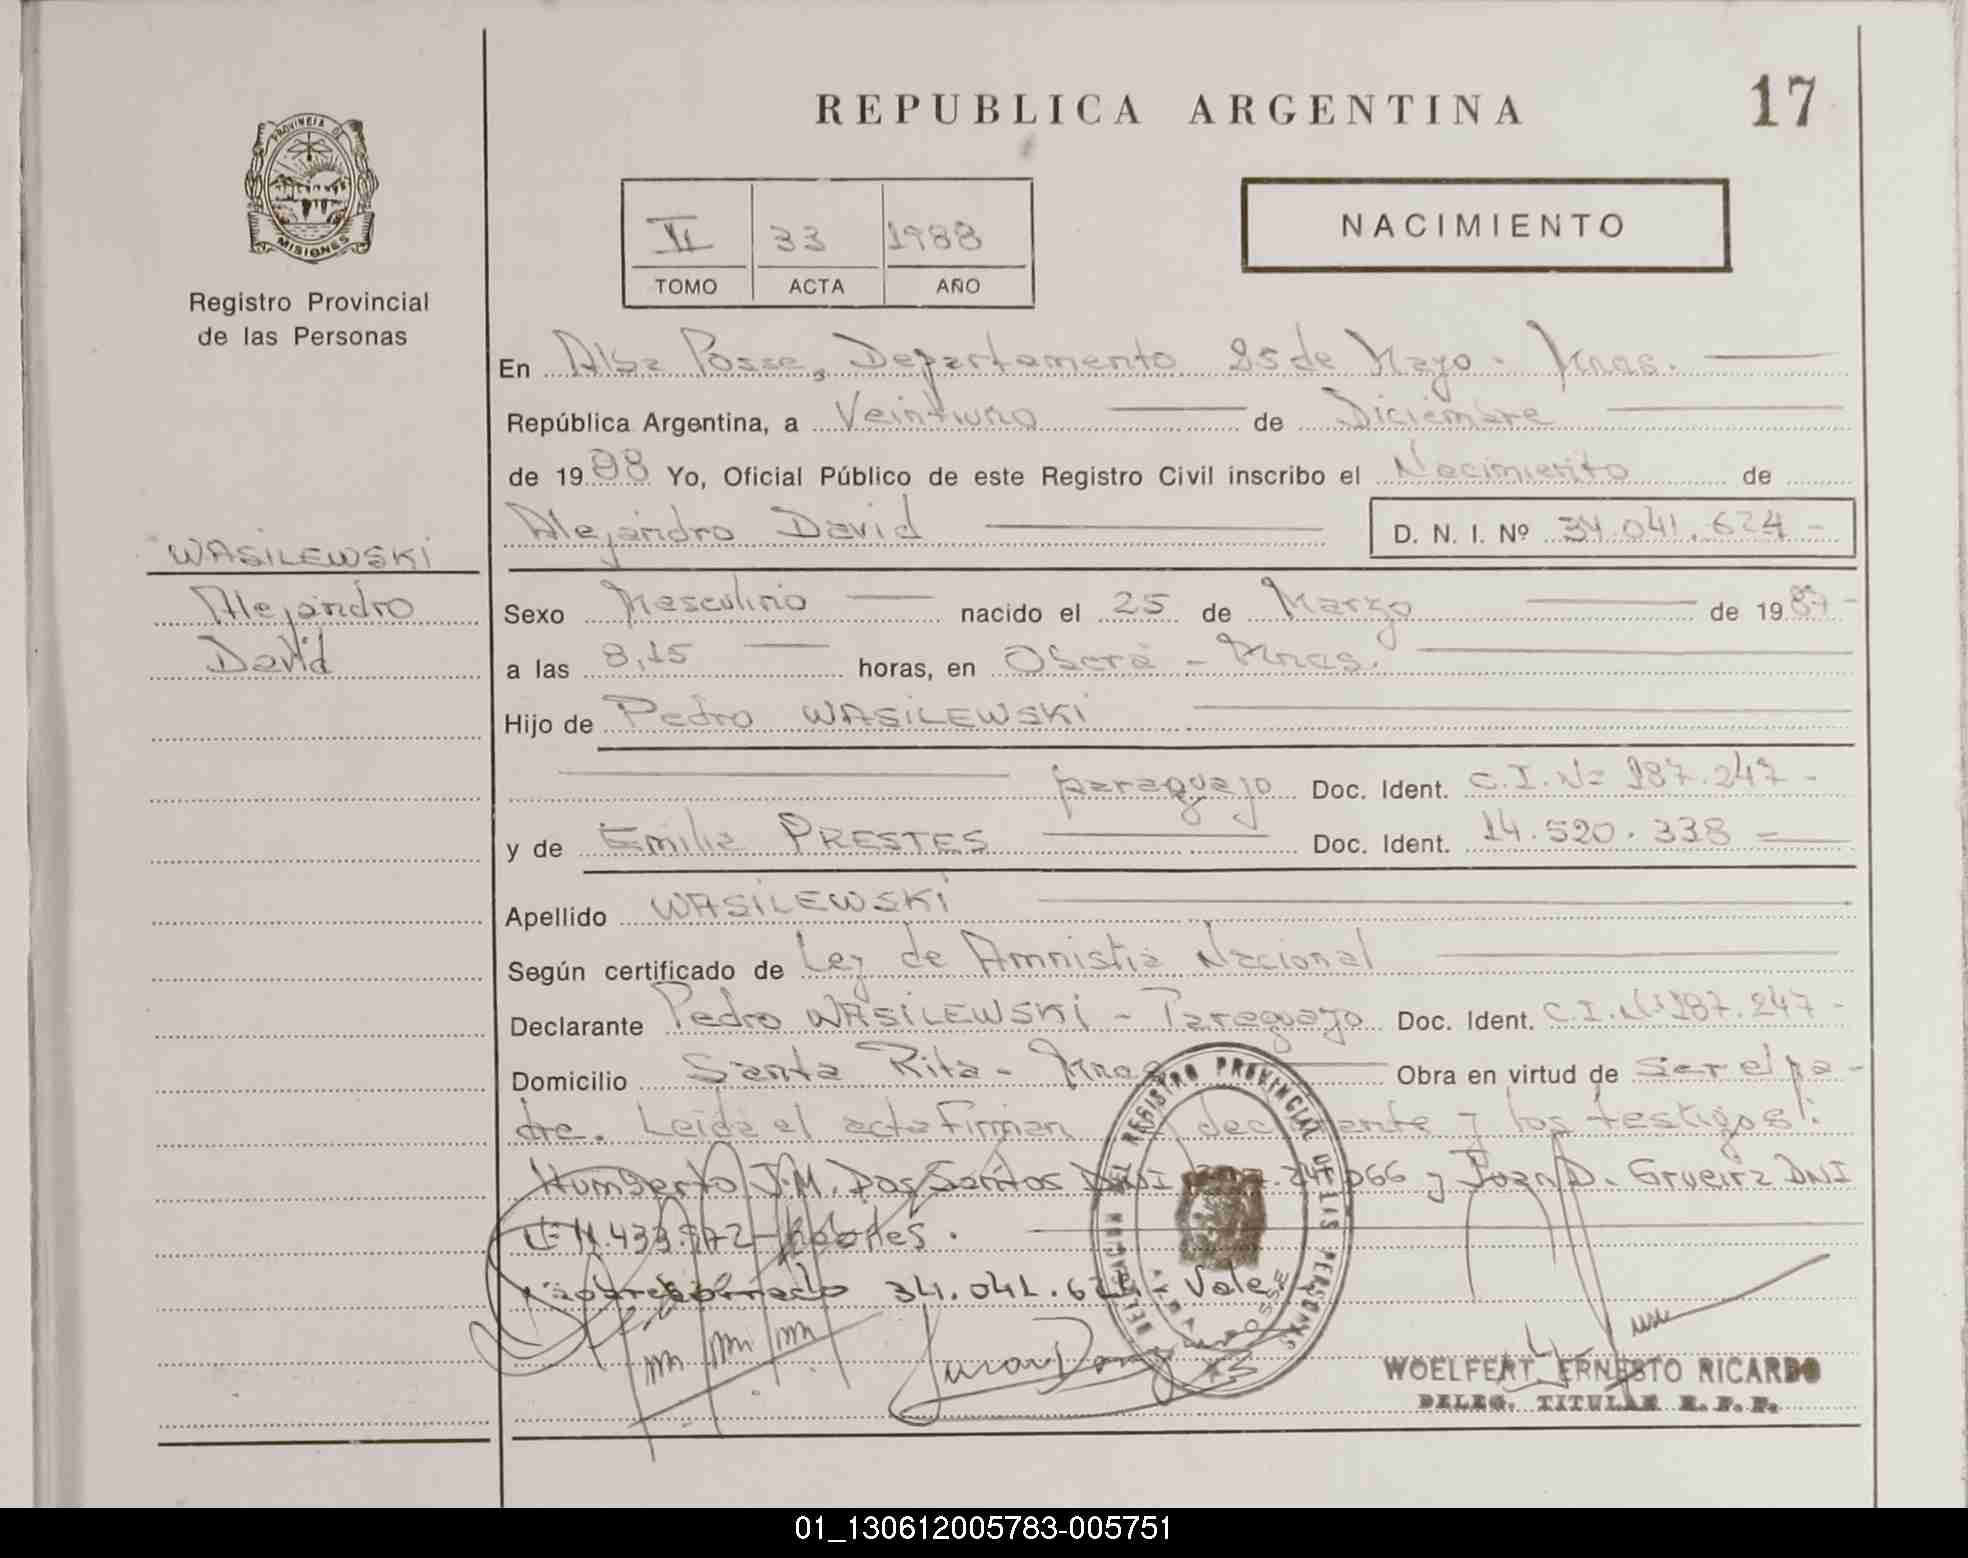 REPUBLICA ARGENTINA
17
PROVINCIA DE
MISIONES
Registro Provincial
de las Personas
II 33 1988
TOMO ACTA AÑO
NACIMIENTO
En Alba Posse, Departamento 25 de Mayo - Mnas.
República Argentina, a Veintiuno de Diciembre
de 1988 Yo, Oficial Público de este Registro Civil inscribo el Nacimiento de
Alejandro David D. N. I. Nº 34.041.624 -
WASILEWSKI
Alejandro
David
Sexo Masculino nacido el 25 de Marzo de 1987 -
a las 8,15 horas, en Oberá - Mnas.
Hijo de Pedro WASILEWSKI
paraguayo Doc. Ident. C.I.Nº 187.247 -
y de Emilia PRESTES Doc. Ident. 14.520.338 =
Apellido WASILEWSKI
Según certificado de Ley de Amnistia Nacional
Declarante Pedro WASILEWSKI - Paraguayo Doc. Ident. C.I.Nº 187.247 -
Domicilio Santa Rita - Mnas Obra en virtud de ser el pa-
dre. Leida el acta firman declarante y los testigos:
Humberto J.M. Dos Santos DNI 066 y Juan D. Grueira DNI
Sobreborrado 34.041.624 - Vale
REGISTRO PROVINCIAL DE LAS PERSONAS
ALBA POSSE
WOELFERT ERNESTO RICARDO
DELEG. TITULAR R. P. P.
01_130612005783-005751